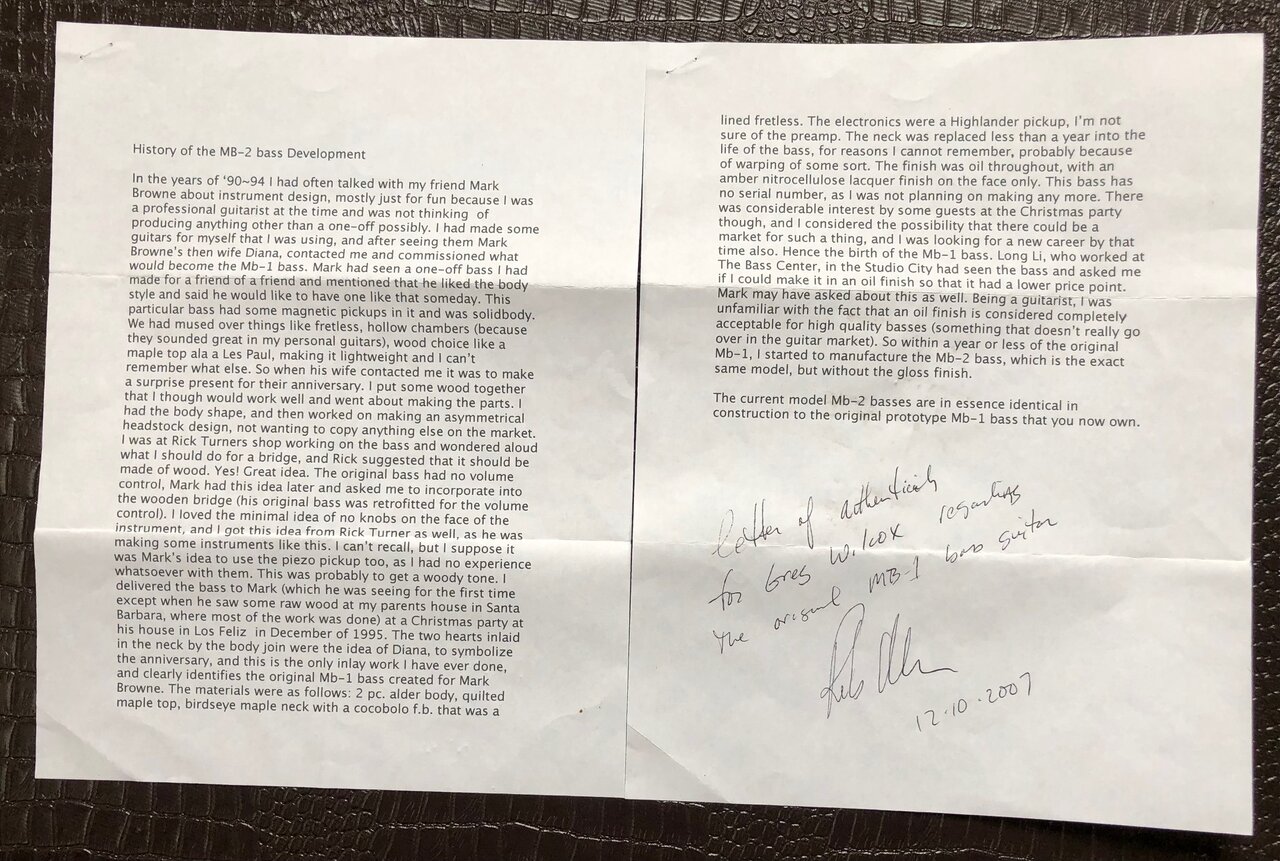 History of the MB-2 bass Development
In the years of '90~94 I had often talked with my friend Mark
Browne about instrument design, mostly just for fun because I was
a professional guitarist at the time and was not thinking of
producing anything other than a one-off possibly. I had made some
guitars for myself that I was using, and after seeing them Mark
Browne's then wife Diana, contacted me and commissioned what
would become the Mb-1 bass. Mark had seen a one-off bass I had
made for a friend of a friend and mentioned that he liked the body
style and said he would like to have one like that someday. This
particular bass had some magnetic pickups in it and was solidbody.
We had mused over things like fretless, hollow chambers (because
they sounded great in my personal guitars), wood choice like a
maple top ala a Les Paul, making it lightweight and I can't
remember what else. So when his wife contacted me it was to make
a surprise present for their anniversary. I put some wood together
that I though would work well and went about making the parts. I
had the body shape, and then worked on making an asymmetrical
headstock design, not wanting to copy anything else on the market.
I was at Rick Turners shop working on the bass and wondered aloud
what I should do for a bridge, and Rick suggested that it should be
made of wood. Yes! Great idea. The original bass had no volume
control, Mark had this idea later and asked me to incorporate into
the wooden bridge (his original bass was retrofitted for the volume
control). I loved the minimal idea of no knobs on the face of the
instrument, and I got this idea from Rick Turner as well, as he was
making some instruments like this. I can't recall, but I suppose it
was Mark's idea to use the piezo pickup too, as I had no experience
whatsoever with them. This was probably to get a woody tone. I
delivered the bass to Mark (which he was seeing for the first time
except when he saw some raw wood at my parents house in Santa
Barbara, where most of the work was done) at a Christmas party at
his house in Los Feliz in December of 1995. The two hearts inlaid
in the neck by the body join were the idea of Diana, to symbolize
the anniversary, and this is the only inlay work I have ever done,
and clearly identifies the original Mb-1 bass created for Mark
Browne. The materials were as follows: 2 pc. alder body, quilted
maple top, birdseye maple neck with a cocobolo f.b. that was a
lined fretless. The electronics were a Highlander pickup, I'm not
sure of the preamp. The neck was replaced less than a year into the
life of the bass, for reasons I cannot remember, probably because
of warping of some sort. The finish was oil throughout, with an
amber nitrocellulose lacquer finish on the face only. This bass has
no serial number, as I was not planning on making any more. There
was considerable interest by some guests at the Christmas party
though, and I considered the possibility that there could be a
market for such a thing, and I was looking for a new career by that
time also. Hence the birth of the Mb-1 bass. Long Li, who worked at
The Bass Center, in the Studio City had seen the bass and asked me
if I could make it in an oil finish so that it had a lower price point.
Mark may have asked about this as well. Being a guitarist, I was
unfamiliar with the fact that an oil finish is considered completely
acceptable for high quality basses (something that doesn't really go
over in the guitar market). So within a year or less of the original
Mb-1, I started to manufacture the Mb-2 bass, which is the exact
same model, but without the gloss finish.
The current model Mb-2 basses are in essence identical in
construction to the original prototype Mb-1 bass that you now own.
letter of authenticity
for Greg Wilcox regarding
the original MB-1 bass guitar
12.10.2007